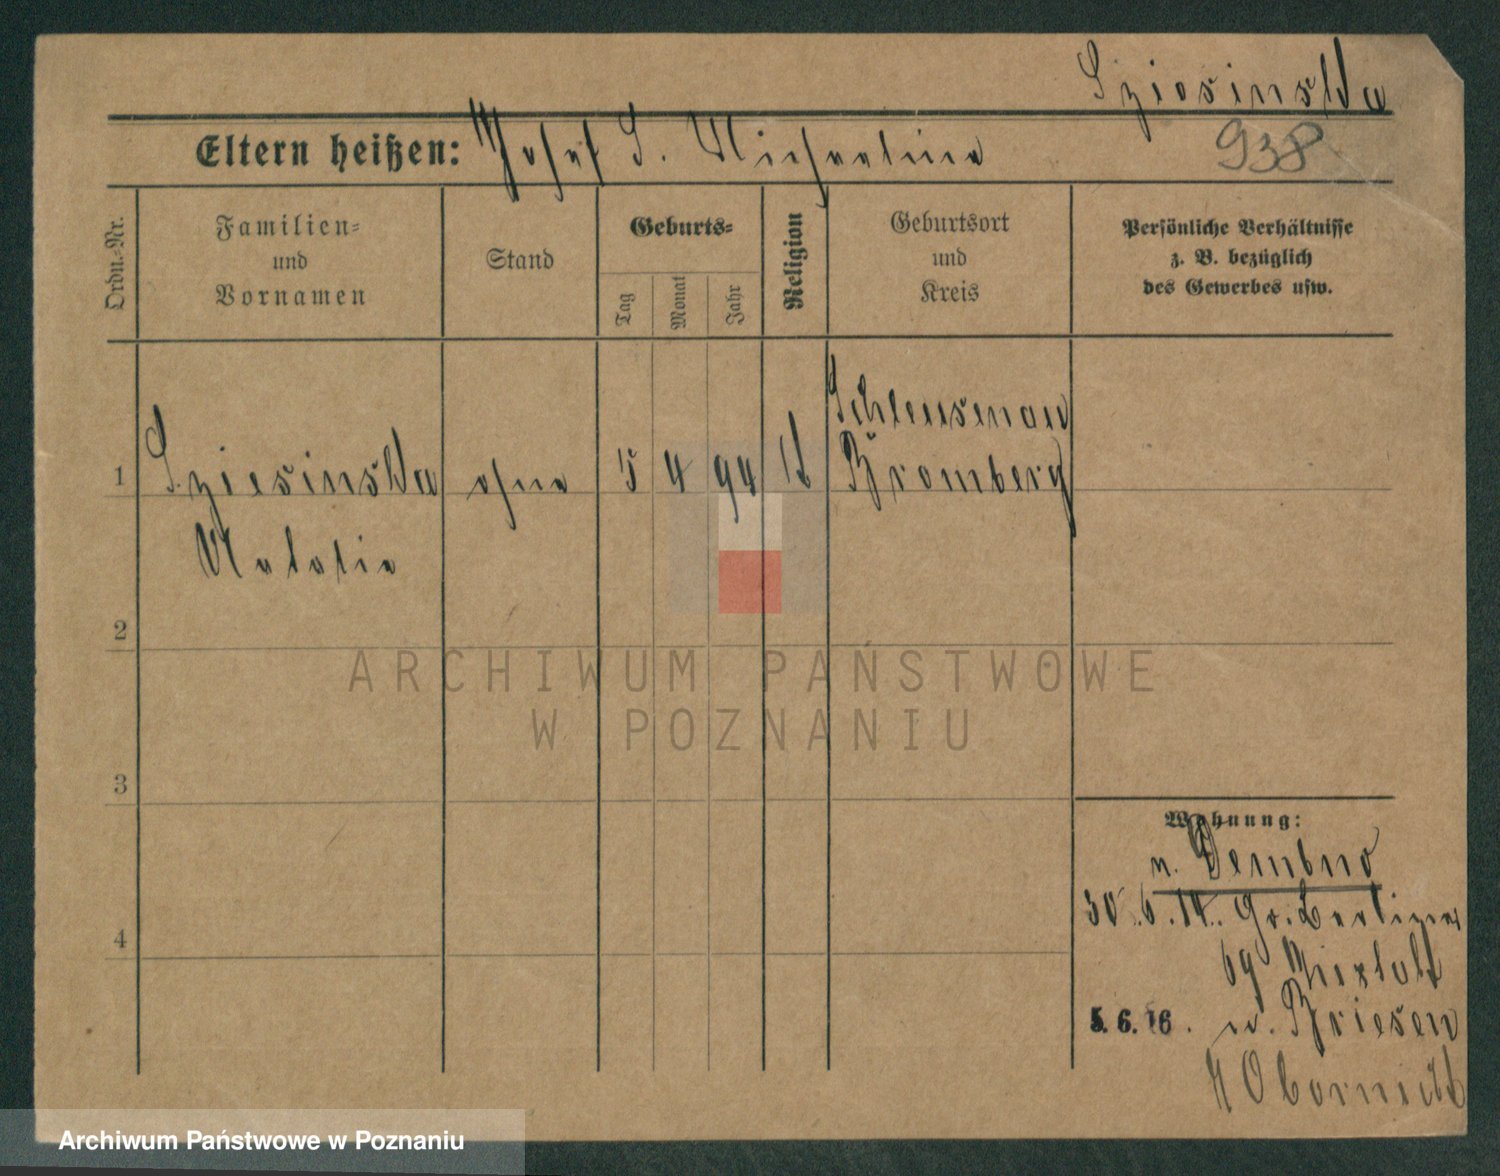 Sziesinska
Eltern heißen: Josef S. Michaelina
938
Ordn.-Nr.
Familien-
und
Vornamen
Stand
Geburts-
Tag
Monat
Jahr
Religion
Geburtsort
und
Kreis
Persönliche Verhältnisse
z. B. bezüglich
des Gewerbes usw.
1
Sziesinska ohne 5 4 94 Schleusenau
Bromberg
Natalie
2
3
4
Wohnung:
n. Dembno
30.6.14. Gr. Berliner
69
5.6.16. n. Briesen
K Obornick
ARCHIWUM PAŃSTWOWE
W POZNANIU
Archiwum Państwowe w Poznaniu